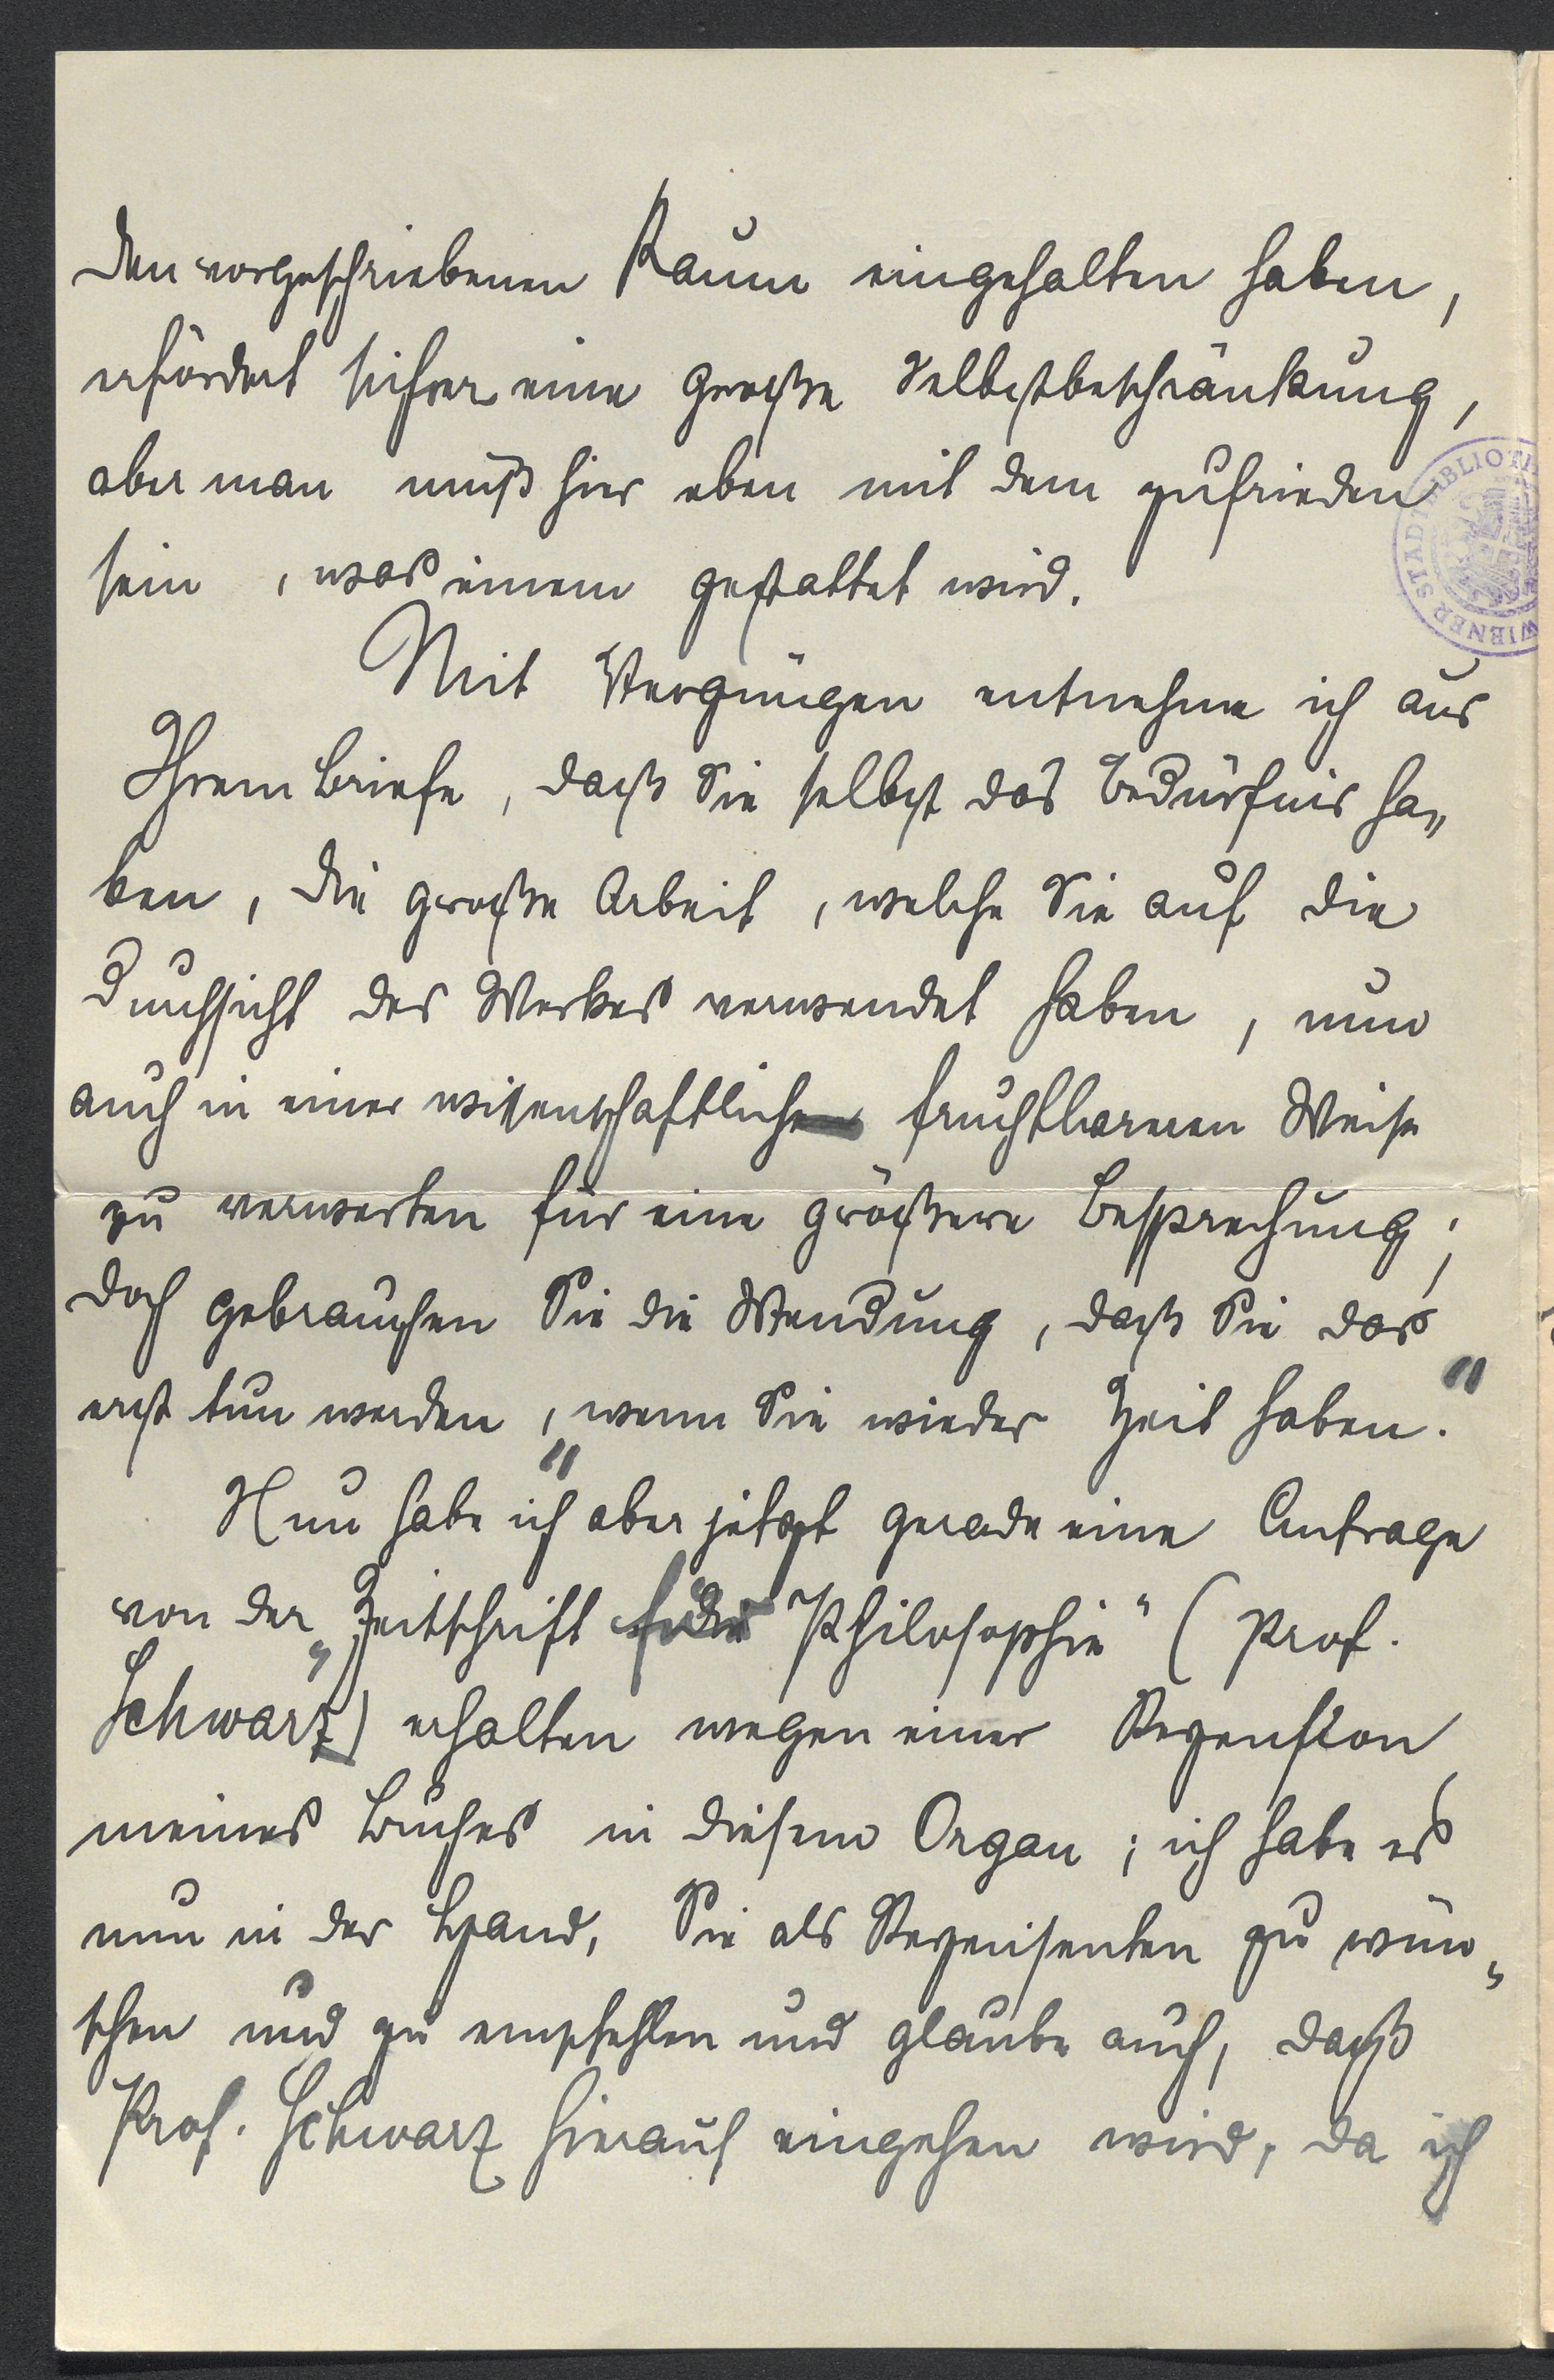 den vorgeschriebenen Raum eingehalten haben,
erfordert sicher eine große Selbstbeschränkung,
aber man muß hier eben mit dem zufrieden
sein, was einem gestattet wird.
Mit Vergnügen entnehme ich aus
Ihrem Briefe, daß Sie selbst das Bedürfnis ha„
ben, die große Arbeit, welche Sie auf die
Durchsicht des Werkes verwendet haben, nun
auch in einer wissenschaftlich fruchtbareren Weise
zu verwerten für eine größere Besprechung;
doch gebrauchen Sie die Wendung, daß Sie das
erst tun werden, „wenn Sie wieder Zeit haben."
Nun habe ich aber jetzt gerade eine Anfrage
von der „Zeitschrift für Philosophie" (Prof.
Schwarz) erhalten wegen einer Rezension
meines Buches in diesem Organ; ich habe es
nun in der Hand, Sie als Rezensenten zu wün„
schen und zu empfehlen und glaube auch, daß
Prof. Schwarz hierauf eingehen wird, da ich
WIENER STADTBIBLIOTH